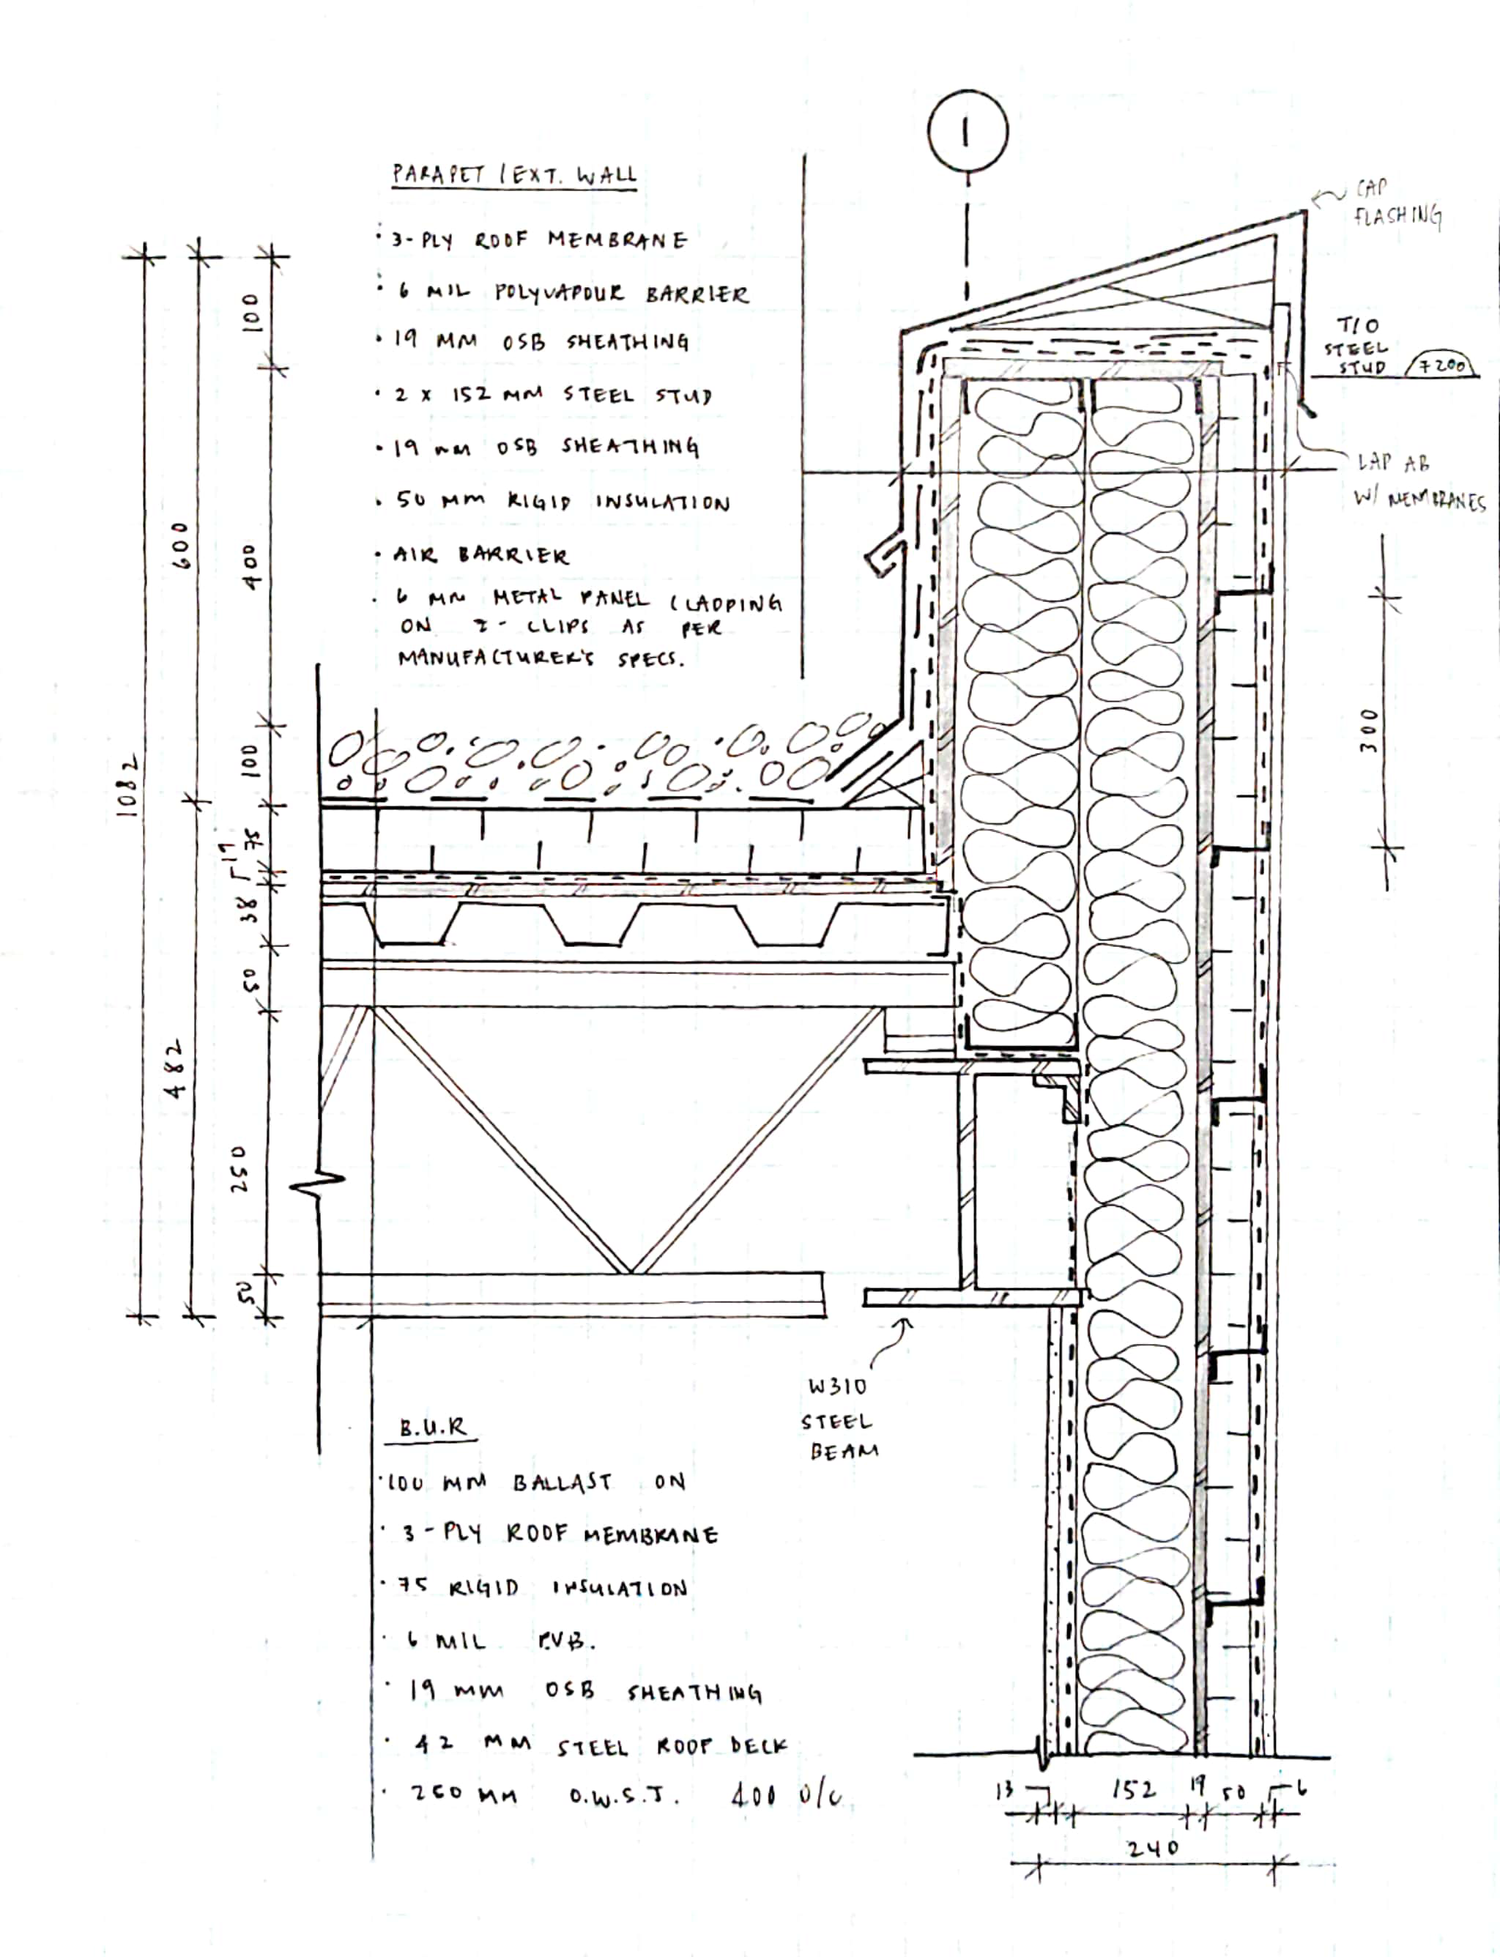 1
PARAPET / EXT. WALL
· 3-PLY ROOF MEMBRANE
· 6 MIL POLYVAPOUR BARRIER
· 19 MM OSB SHEATHING
· 2 x 152 MM STEEL STUD
· 19 MM OSB SHEATHING
· 50 MM RIGID INSULATION
· AIR BARRIER
· 6 MM METAL PANEL CLADDING
ON Z-CLIPS AS PER
MANUFACTURER'S SPECS.
CAP
FLASHING
T/O
STEEL
STUD 7200
LAP AB
W/ MEMBRANES
300
1082
600
482
100
400
100
75
19
38
50
250
50
W310
STEEL
BEAM
B.U.R
· 100 MM BALLAST ON
· 3-PLY ROOF MEMBRANE
· 75 RIGID INSULATION
· 6 MIL P.V.B.
· 19 MM OSB SHEATHING
· 42 MM STEEL ROOF DECK
· 250 MM O.W.S.J. 400 O/C
13 152 19 50 6
240